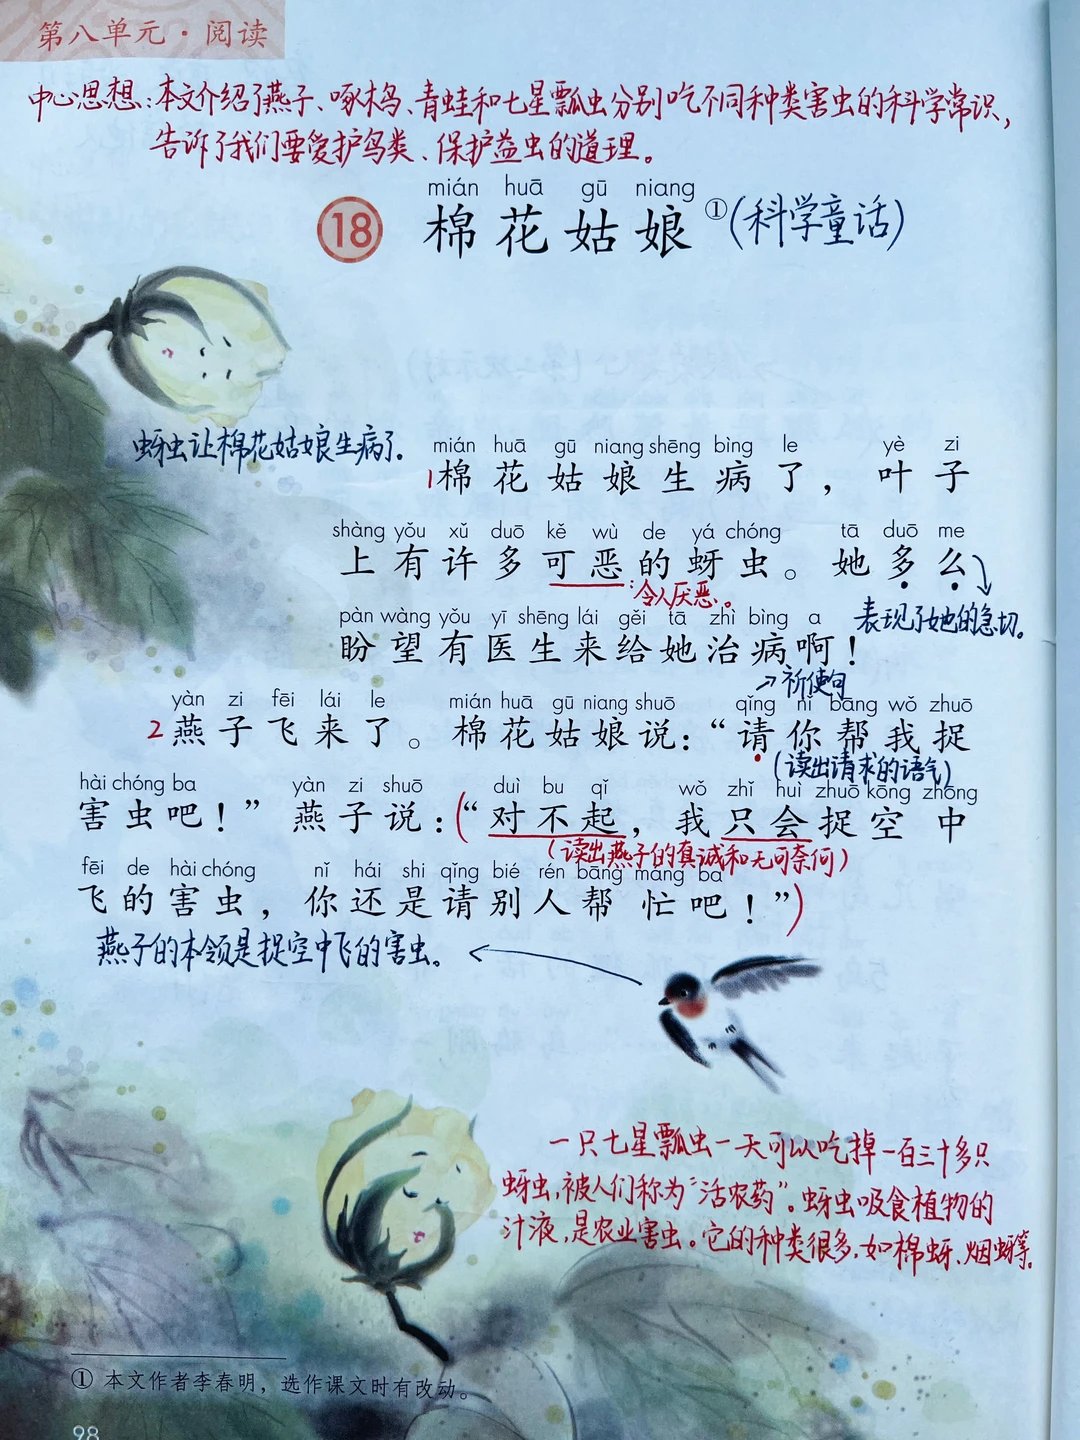 第八单元·阅读
中心思想:本文介绍了燕子、啄木鸟、青蛙和七星瓢虫分别吃不同种类害虫的科学常识,
告诉了我们要爱护鸟类、保护益虫的道理。
mián huā gū niang
18 棉花姑娘①(科学童话)
蚜虫让棉花姑娘生病了.
mián huā gū niang shēng bìng le yè zi
1棉花姑娘生病了，叶子
shàng yǒu xǔ duō kě wù de yá chóng tā duō me
上有许多可恶的蚜虫。她多么
:令人厌恶。
表现了她的急切.
pàn wàng yǒu yī shēng lái gěi tā zhì bìng a
盼望有医生来给她治病啊！
→祈使句
yàn zi fēi lái le mián huā gū niang shuō qǐng nǐ bāng wǒ zhuō
2燕子飞来了。棉花姑娘说：“请你帮我捉
(读出请求的语气)
hài chóng ba yàn zi shuō duì bu qǐ wǒ zhǐ huì zhuō kōng zhōng
害虫吧！”燕子说：(“对不起，我只会捉空中
(读出燕子的真诚和无可奈何)
fēi de hài chóng nǐ hái shi qǐng bié rén bāng máng ba
飞的害虫，你还是请别人帮忙吧！”)
燕子的本领是捉空中飞的害虫。
一只七星瓢虫一天可以吃掉一百三十多只
蚜虫,被人们称为“活农药”。蚜虫吸食植物的
汁液,是农业害虫。它的种类很多,如棉蚜、烟蚜等。
① 本文作者李春明，选作课文时有改动。
98